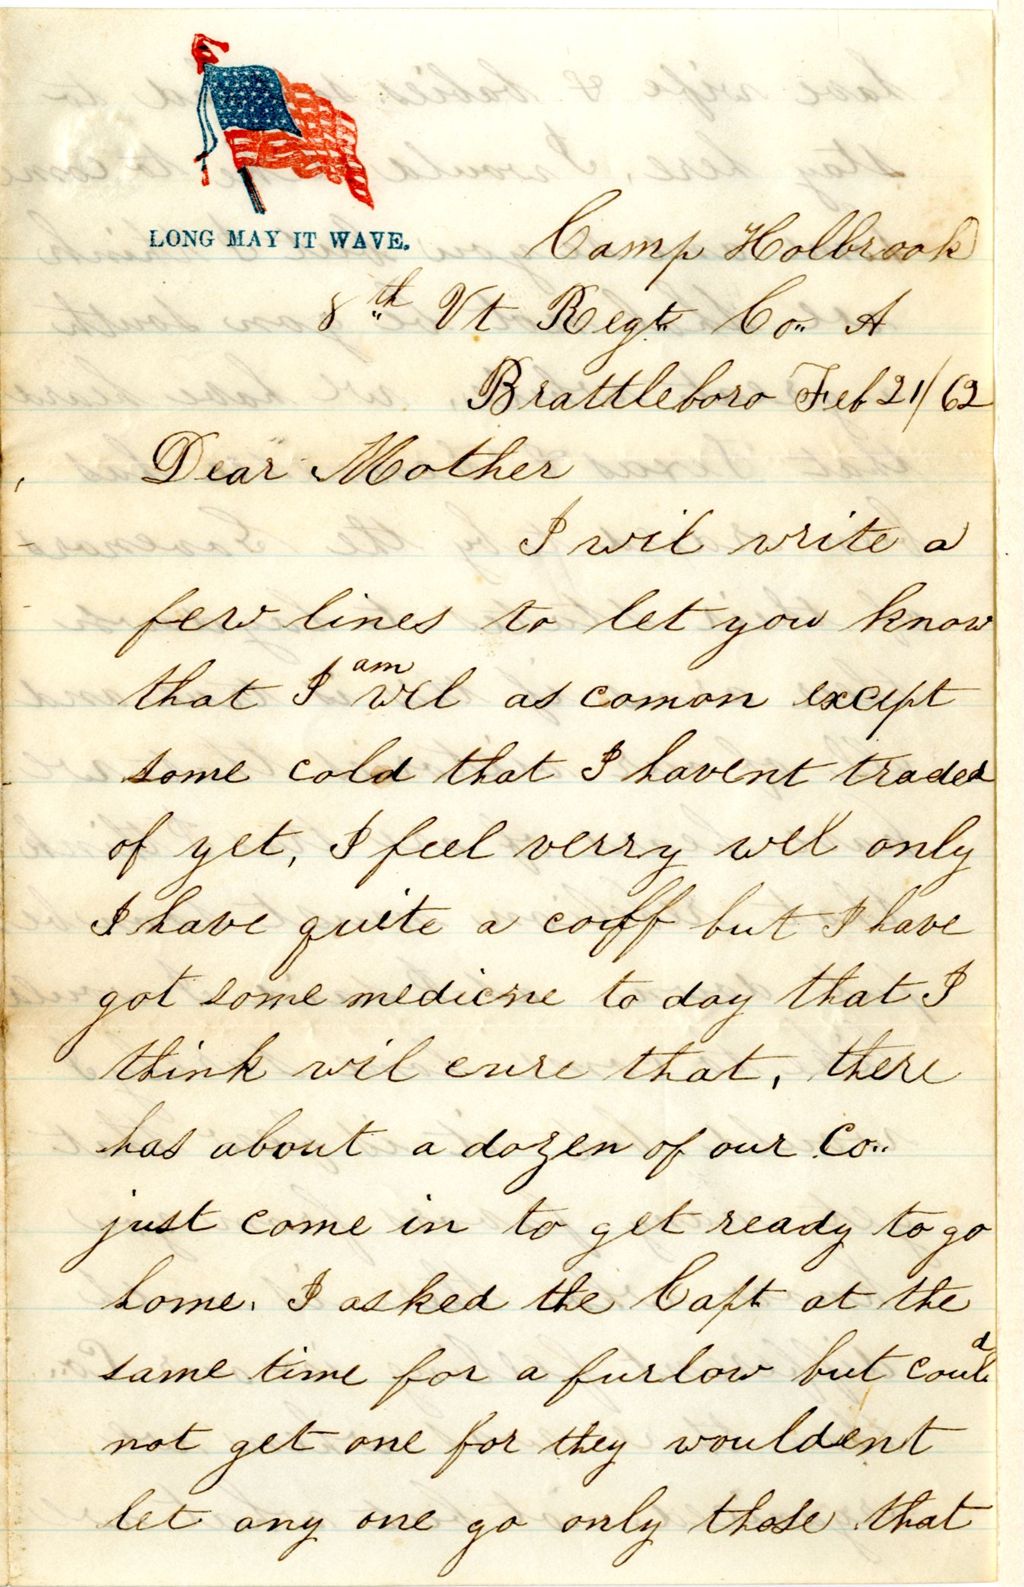 LONG MAY IT WAVE.
Camp Holbrook
8th Vt Regt Co. A
Brattleboro Feb 21/62
Dear Mother
I wil write a
few lines to let you know
that I am wel as comon except
some cold that I havent traded
of yet, I feel verry wel only
I have quite a coff but I have
got some medicine to day that I
think wil cure that, there
has about a dozen of our Co..
just come in to get ready to go
home. I asked the Capt at the
same time for a furlow but could
not get one for they wouldent
let any one go only those that